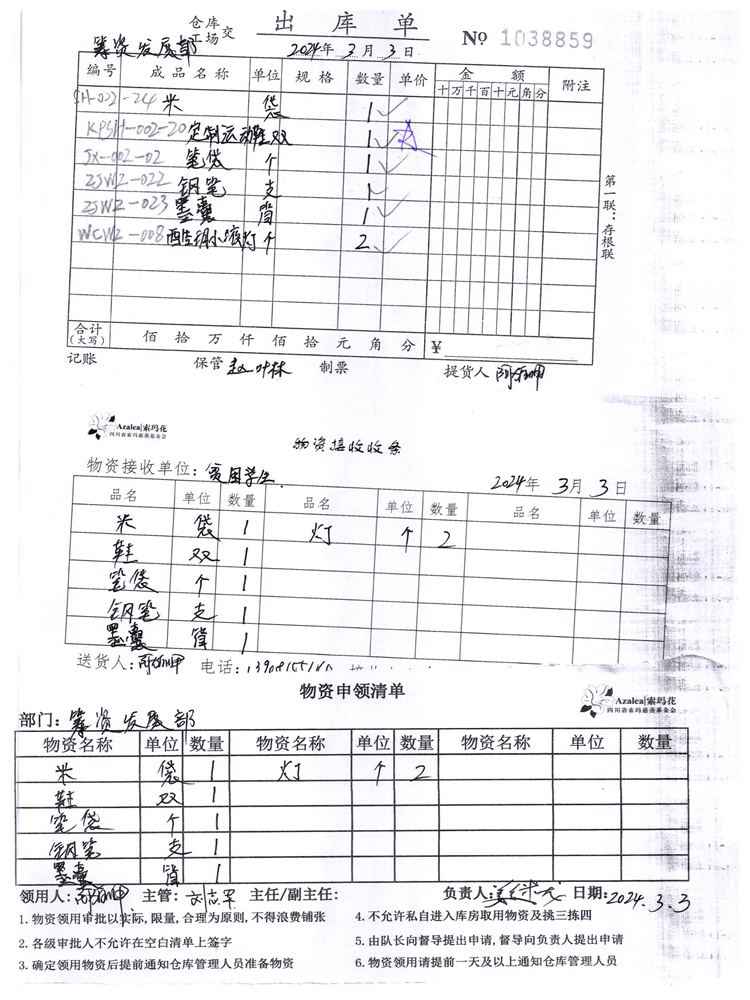 仓库
工场交
出库单
№ 1038859
筹资发展部
2024年3月3日
编号 成品名称 单位 规格 数量 单价 金额 附注
十 万 千 百 十 元 角 分
-002-24 米 袋 1
KPSH-002-20 定制运动鞋 双 1
JX-002-02 笔袋 个 1
ZSWZ-022 钢笔 支 1
ZSWZ-023 墨囊 管 1
WCWZ-008 小夜灯 个 2
第一联：存根联
合计（大写） 佰 拾 万 仟 佰 拾 元 角 分 ¥
记账 保管 制票 提货人
Azalea|索玛花
四川省索玛慈善基金会
物资接收收条
物资接收单位：贫困学生
2024年3月3日
品名 单位 数量 品名 单位 数量 品名 单位 数量
米 袋 1 灯 个 2
鞋 双 1
笔袋 个 1
钢笔 支 1
墨囊 管 1
送货人： 电话：
物资申领清单
Azalea|索玛花
四川省索玛慈善基金会
部门：筹资发展部
物资名称 单位 数量 物资名称 单位 数量 物资名称 单位 数量
米 袋 1 灯 个 2
鞋 双 1
笔袋 个 1
钢笔 支 1
墨囊 管 1
领用人： 主管： 主任/副主任： 负责人： 日期：2024.3.3
1.物资领用审批以实际,限量,合理为原则,不得浪费铺张
4.不允许私自进入库房取用物资及挑三拣四
2.各级审批人不允许在空白清单上签字
5.由队长向督导提出申请,督导向负责人提出申请
3.确定领用物资后提前通知仓库管理人员准备物资
6.物资领用请提前一天及以上通知仓库管理人员